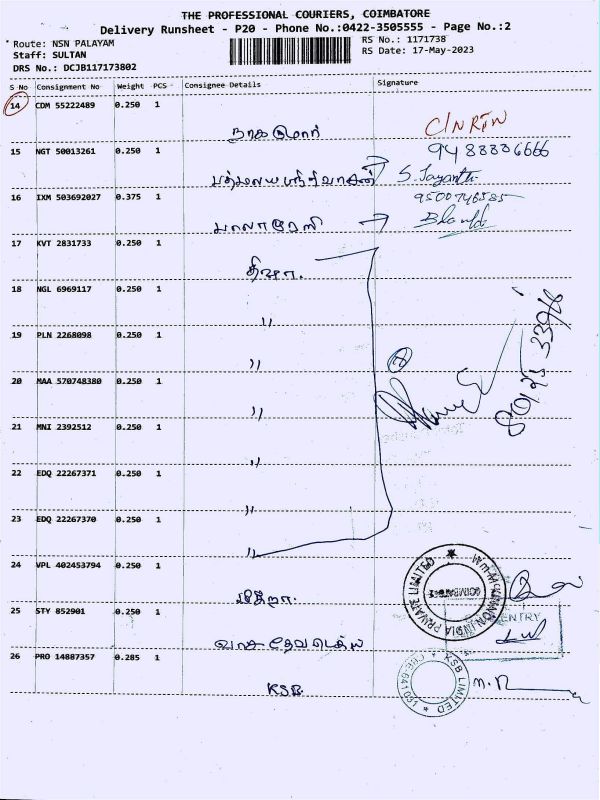 THE PROFESSIONAL COURIERS, COIMBATORE
Delivery Runsheet - P20 - Phone No.:0422-3505555 - Page No.:2
Route: NSN PALAYAM
RS No.: 1171738
Staff: SULTAN
RS Date: 17-May-2023
DRS No.: DCJB117173802
S No Consignment No Weight PCS Consignee Details Signature
14 CDM 55222489 0.250 1
15 NGT 50013261 0.250 1
9488886666
16 IXM 503692027 0.375 1
S. Jayanthi
9500746585
17 KVT 2831733 0.250 1
திஷா.
18 NGL 6969117 0.250 1
"
19 PLN 2268098 0.250 1
"
20 MAA 570748380 0.250 1
"
7
80125 33946
21 MNI 2392512 0.250 1
"
22 EDQ 22267371 0.250 1
"
23 EDQ 22267370 0.250 1
"
24 VPL 402453794 0.250 1
மித்ரா.
25 STY 852901 0.250 1
INDIA PRIVATE LIMITED
COIMBATORE
ENTRY
26 PRO 14887357 0.285 1
KSB
KSB LIMITED
CBE-641031
m.n